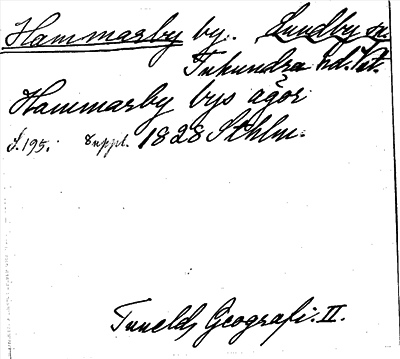 Hammarby by. Lundby sn.
Tuhundra hd. Vst.
Hammarby bys ägor
S. 195. Suppl. 1828 Sthlm.
Tunelds Geografi. II.